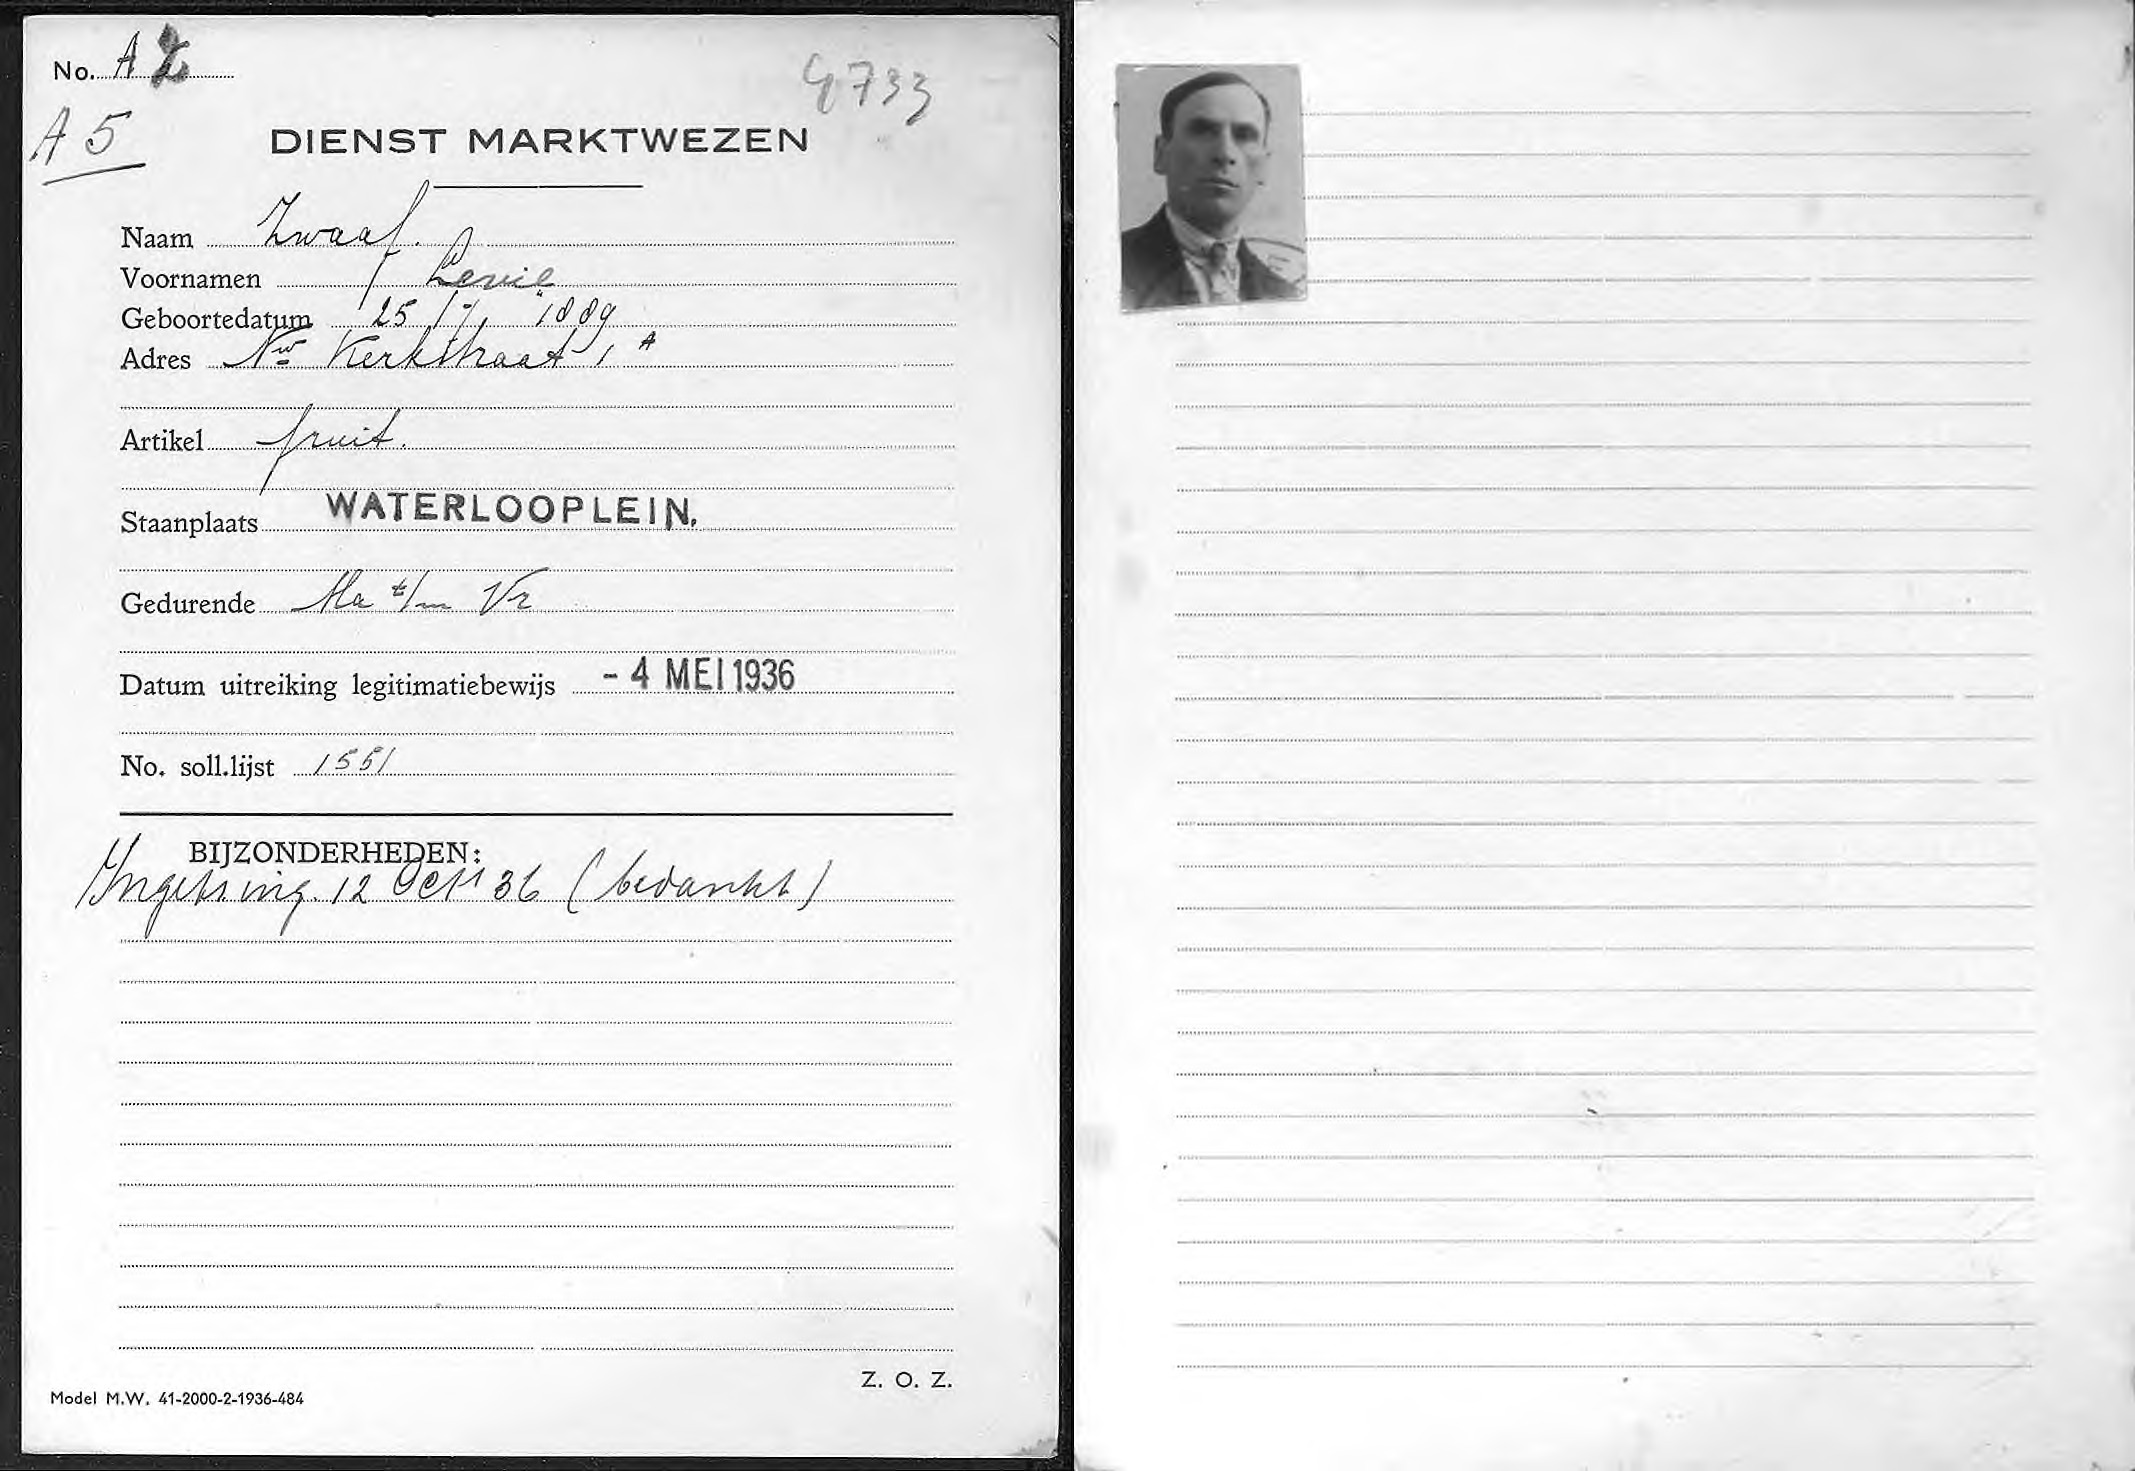 No. A 2
4733
A 5
DIENST MARKTWEZEN
Naam Zwaaf.
Voornamen Levie
Geboortedatum 25 / 7 1889
Adres Nwe Kerkstraat 1 A
Artikel fruit.
Staanplaats WATERLOOPLEIN.
Gedurende Ma t/m Vr
Datum uitreiking legitimatiebewijs - 4 MEI 1936
No. soll.lijst 1551
BIJZONDERHEDEN:
12 Oct 36 (bedankt)
Z. O. Z.
Model M.W. 41-2000-2-1936-484